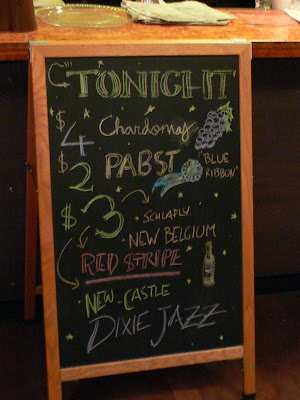 TONIGHT
$4 Chardonnay
$2 PABST 'BLUE RIBBON'
$3 · SCHLAFLY
· NEW BELGIUM
RED STRIPE
NEW-CASTLE
DIXIE JAZZ